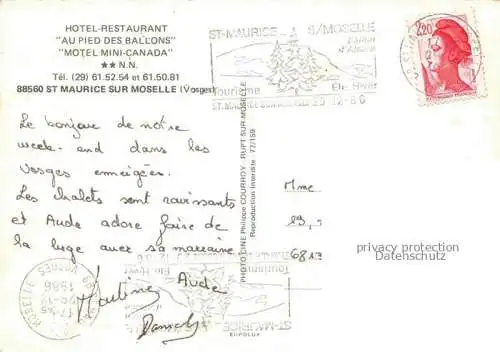 HOTEL-RESTAURANT
"AU PIED DES BALLONS"
"MOTEL MINI-CANADA"
★★ N.N.
Tél. (29) 61.52.54 et 61.50.81
88560 ST MAURICE SUR MOSELLE (Vosges)
ST-MAURICE S/MOSELLE
Ballon
d'Alsace
Tourisme Eté Hiver
2,20
Le bonjour de notre
week-end dans les
Vosges enneigées.
Les chalets sont ravissants
et Aude adore faire de
la luge avec sa marraine
Aude
PHOTO CINE Philippe COURROY - RUPT SUR MOSELLE
Reproduction Interdite - 77/159
Mme
privacy protection
Datenschutz
Tourisme
Eté Hiver
ST-MAURICE
1986
EUROLUX